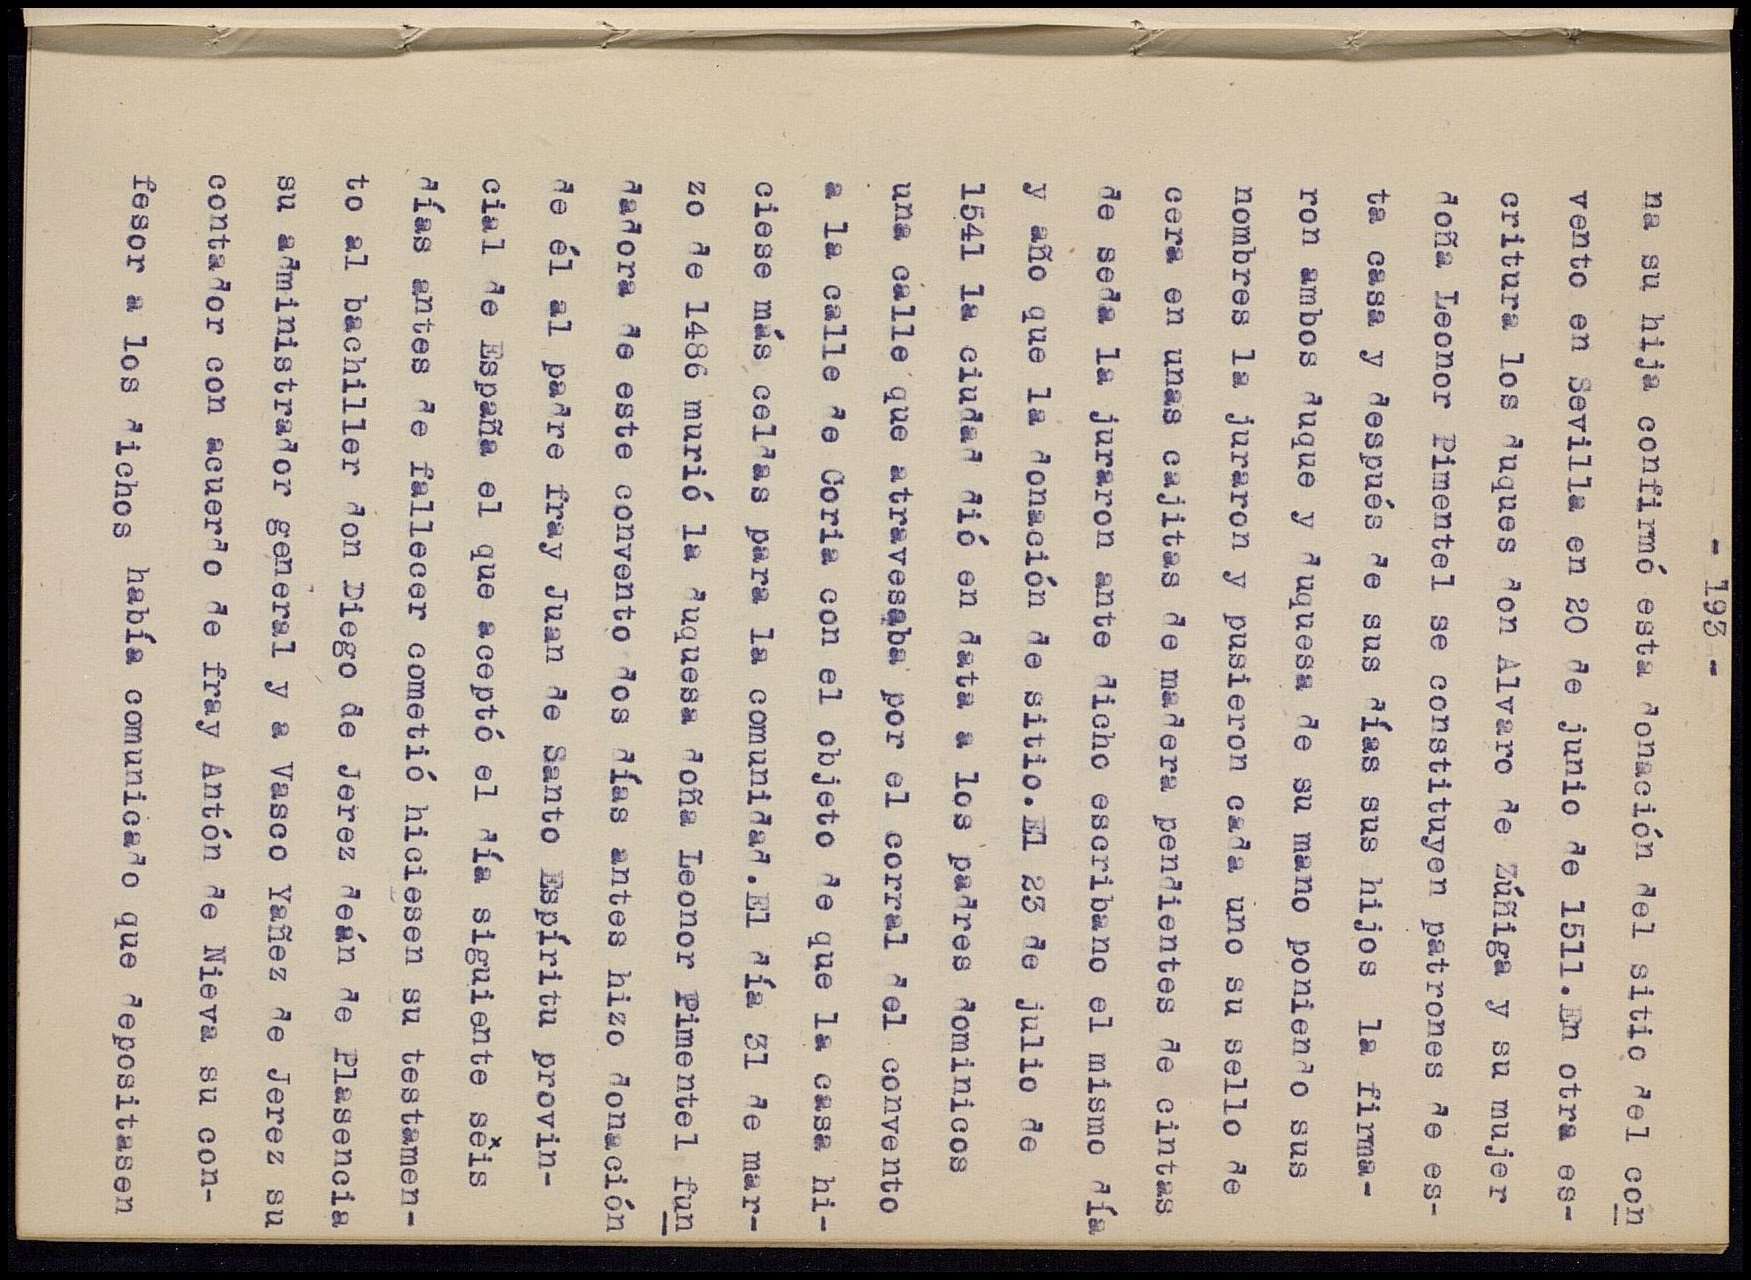 - 193 -
na su hija confirmó esta donación del sitio del con
vento en Sevilla en 20 de junio de 1511.En otra es-
critura los duques don Alvaro de Zúñiga y su mujer
doña Leonor Pimentel se constituyen patrones de es-
ta casa y después de sus días sus hijos la firma-
ron ambos duque y duquesa de su mano poniendo sus
nombres la juraron y pusieron cada uno su sello de
cera en unas cajitas de madera pendientes de cintas
de seda la juraron ante dicho escribano el mismo día
y año que la donación de sitio.El 23 de julio de
1541 la ciudad dió en data a los padres dominicos
una calle que atravesaba por el corral del convento
a la calle de Coria con el objeto de que la casa hi-
ciese más celdas para la comunidad.El día 31 de mar-
zo de 1486 murió la duquesa doña Leonor Pimentel fun
dadora de este convento dos días antes hizo donación
de él al padre fray Juan de Santo Espíritu provin-
cial de España el que aceptó el día siguiente seis
días antes de fallecer cometió hiciesen su testamen-
to al bachiller don Diego de Jerez deán de Plasencia
su administrador general y a Vasco Yañez de Jerez su
contador con acuerdo de fray Antón de Nieva su con-
fesor a los dichos había comunicado que depositasen